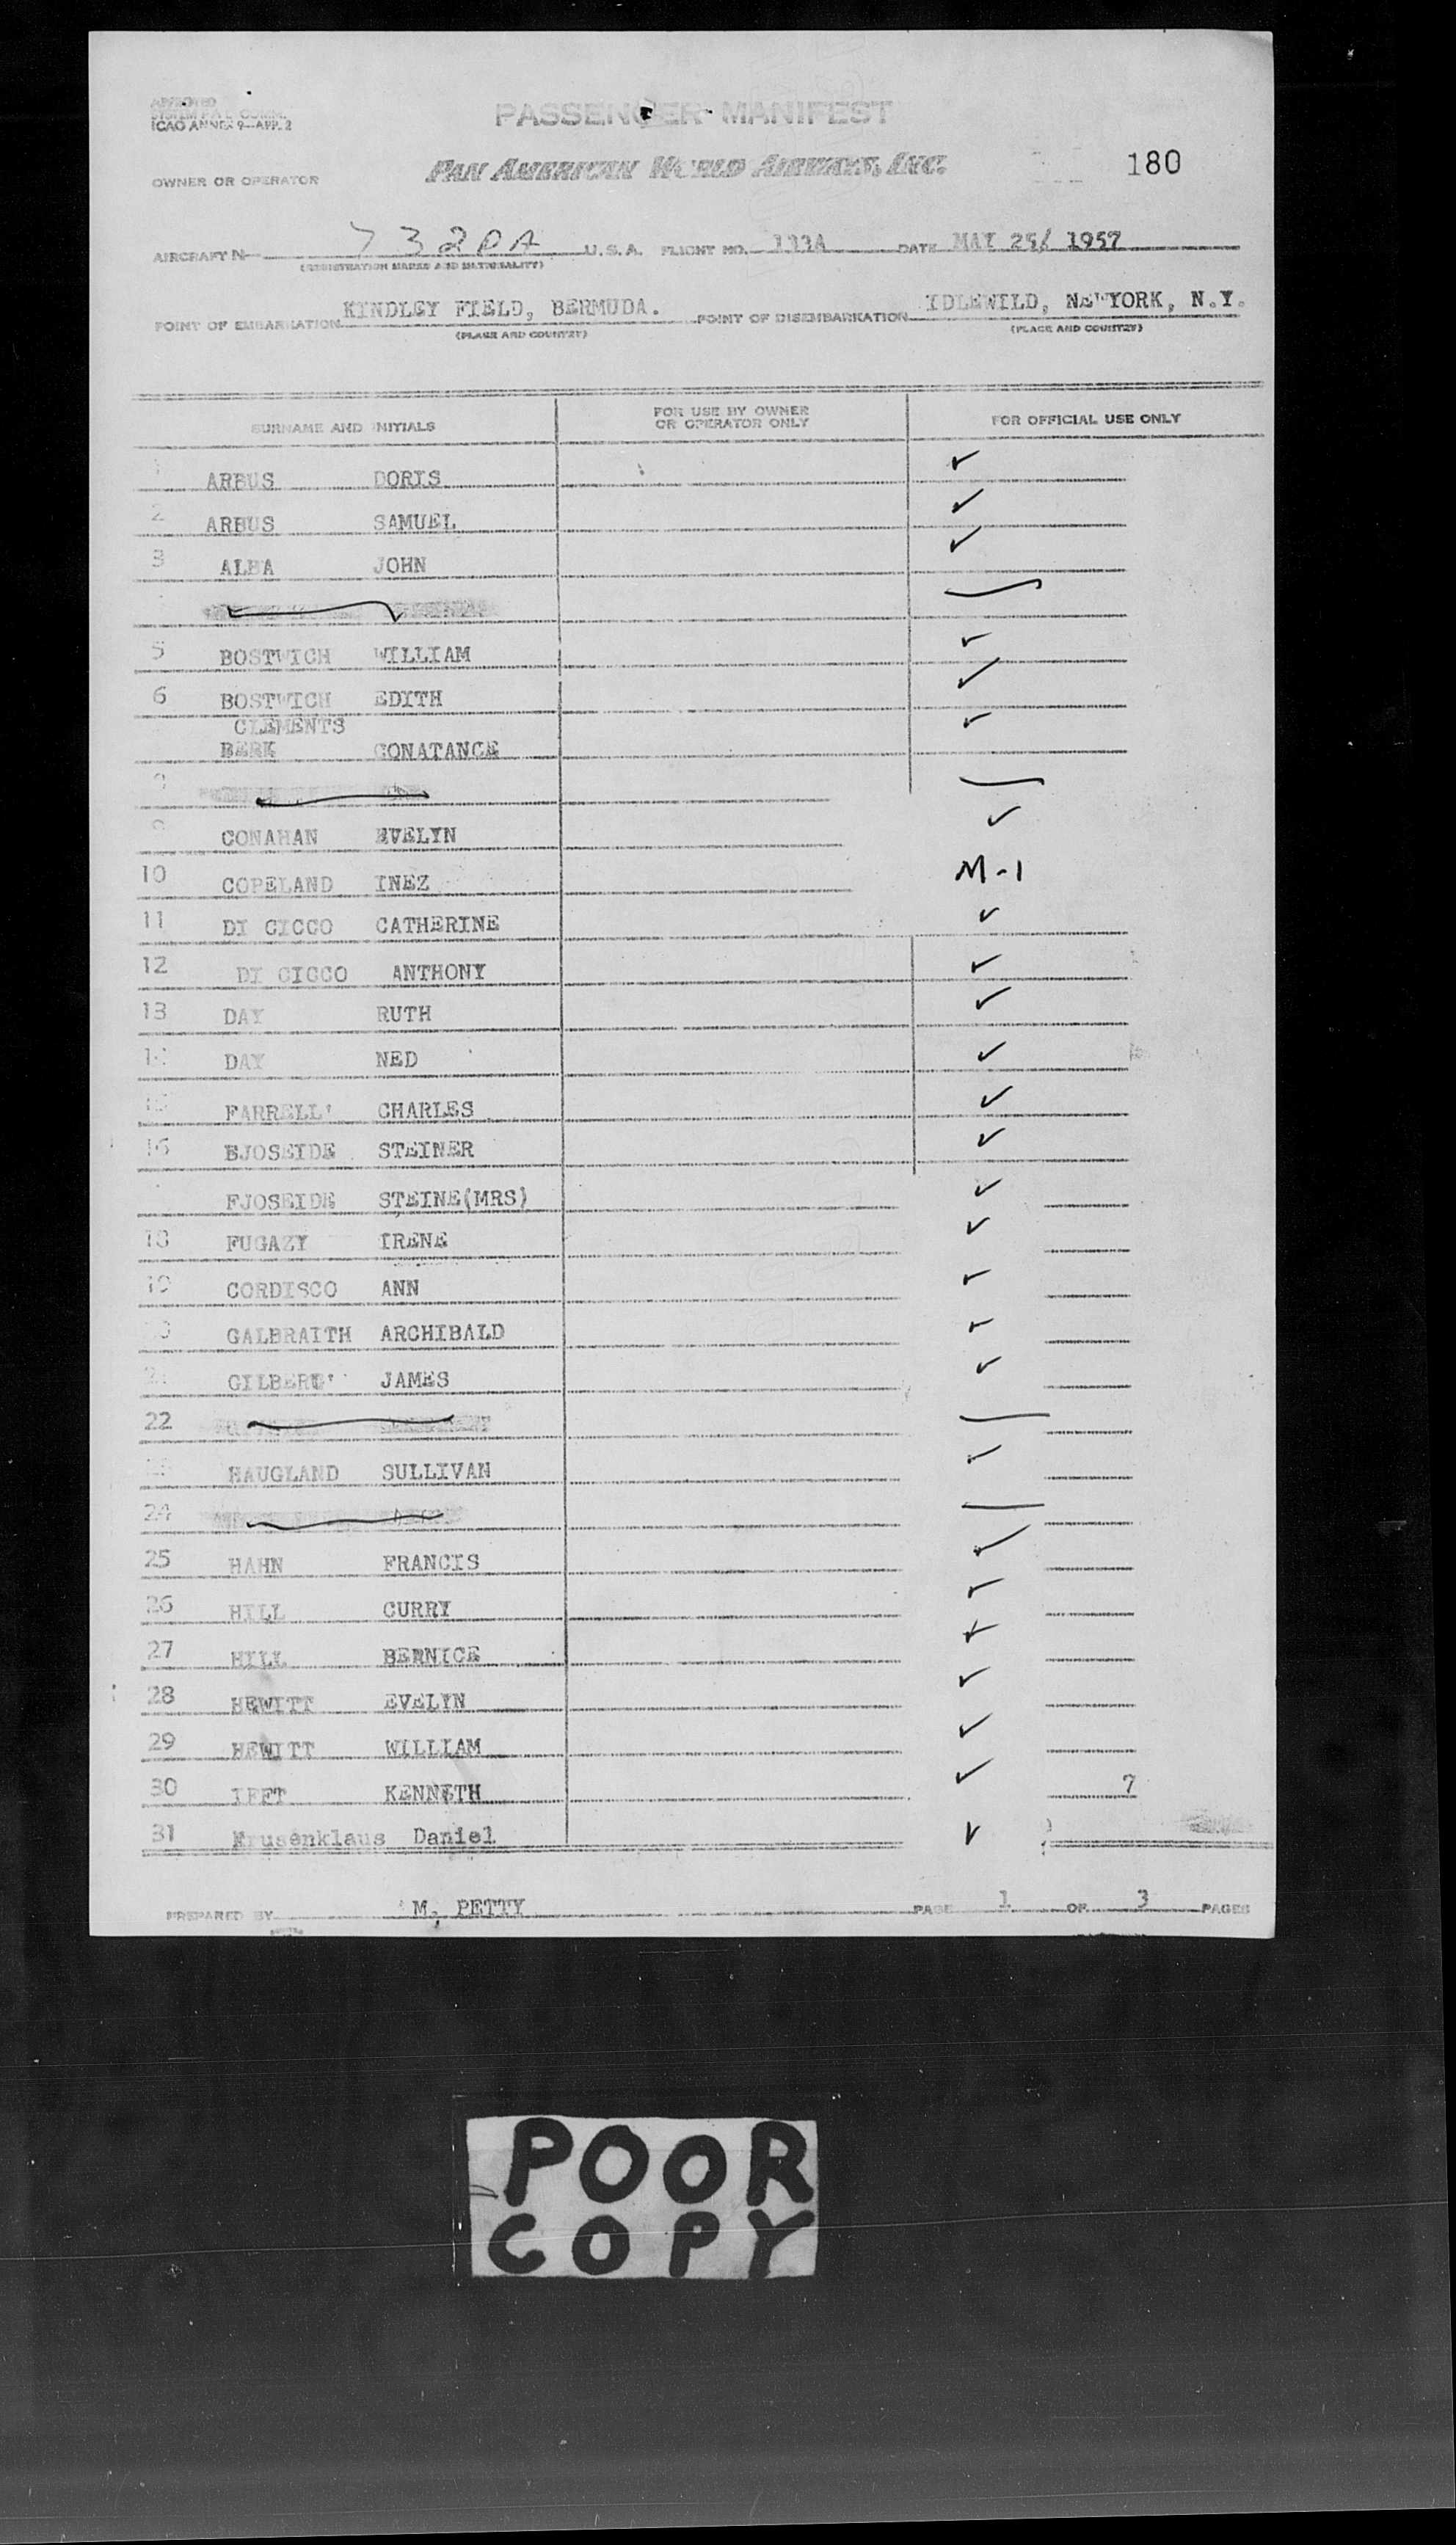 APPROVED
ICAO ANNEX 9—APP. 2
PASSENGER MANIFEST
OWNER OR OPERATOR
PAN AMERICAN WORLD AIRWAYS, INC.
180
AIRCRAFT N— 732PA U.S.A. FLIGHT NO. 133A DATE MAY 25/ 1957
(REGISTRATION MARKS AND NATIONALITY)
POINT OF EMBARKATION KINDLEY FIELD, BERMUDA. POINT OF DISEMBARKATION IDLEWILD, NEW YORK, N.Y.
(PLACE AND COUNTRY) (PLACE AND COUNTRY)
SURNAME AND INITIALS FOR USE BY OWNER OR OPERATOR ONLY FOR OFFICIAL USE ONLY
1 ARBUS DORIS ✓
2 ARBUS SAMUEL ✓
3 ALBA JOHN ✓
5 BOSTWICH WILLIAM ✓
6 BOSTWICH EDITH ✓
CLEMENTS
BERK CONATANCE ✓
CONAHAN EVELYN ✓
10 COPELAND INEZ M-1
11 DI CICCO CATHERINE ✓
12 DI CICCO ANTHONY ✓
13 DAY RUTH ✓
14 DAY NED ✓
15 FARRELL' CHARLES ✓
16 BJOSEIDE STEINER ✓
FJOSEIDE STEINE(MRS) ✓
18 FUGAZY IRENE ✓
19 CORDISCO ANN ✓
GALBRAITH ARCHIBALD ✓
21 GILBERT' JAMES ✓
22
HAUGLAND SULLIVAN ✓
24
25 HAHN FRANCIS ✓
26 HILL CURRY ✓
27 HILL BERNICE ✓
28 HEWITT EVELYN ✓
29 HEWITT WILLIAM ✓
30 IFFT KENNETH ✓ 7
31 Krusenklaus Daniel ✓
PREPARED BY M. PETTY PAGE 1 OF 3 PAGES
POOR
COPY